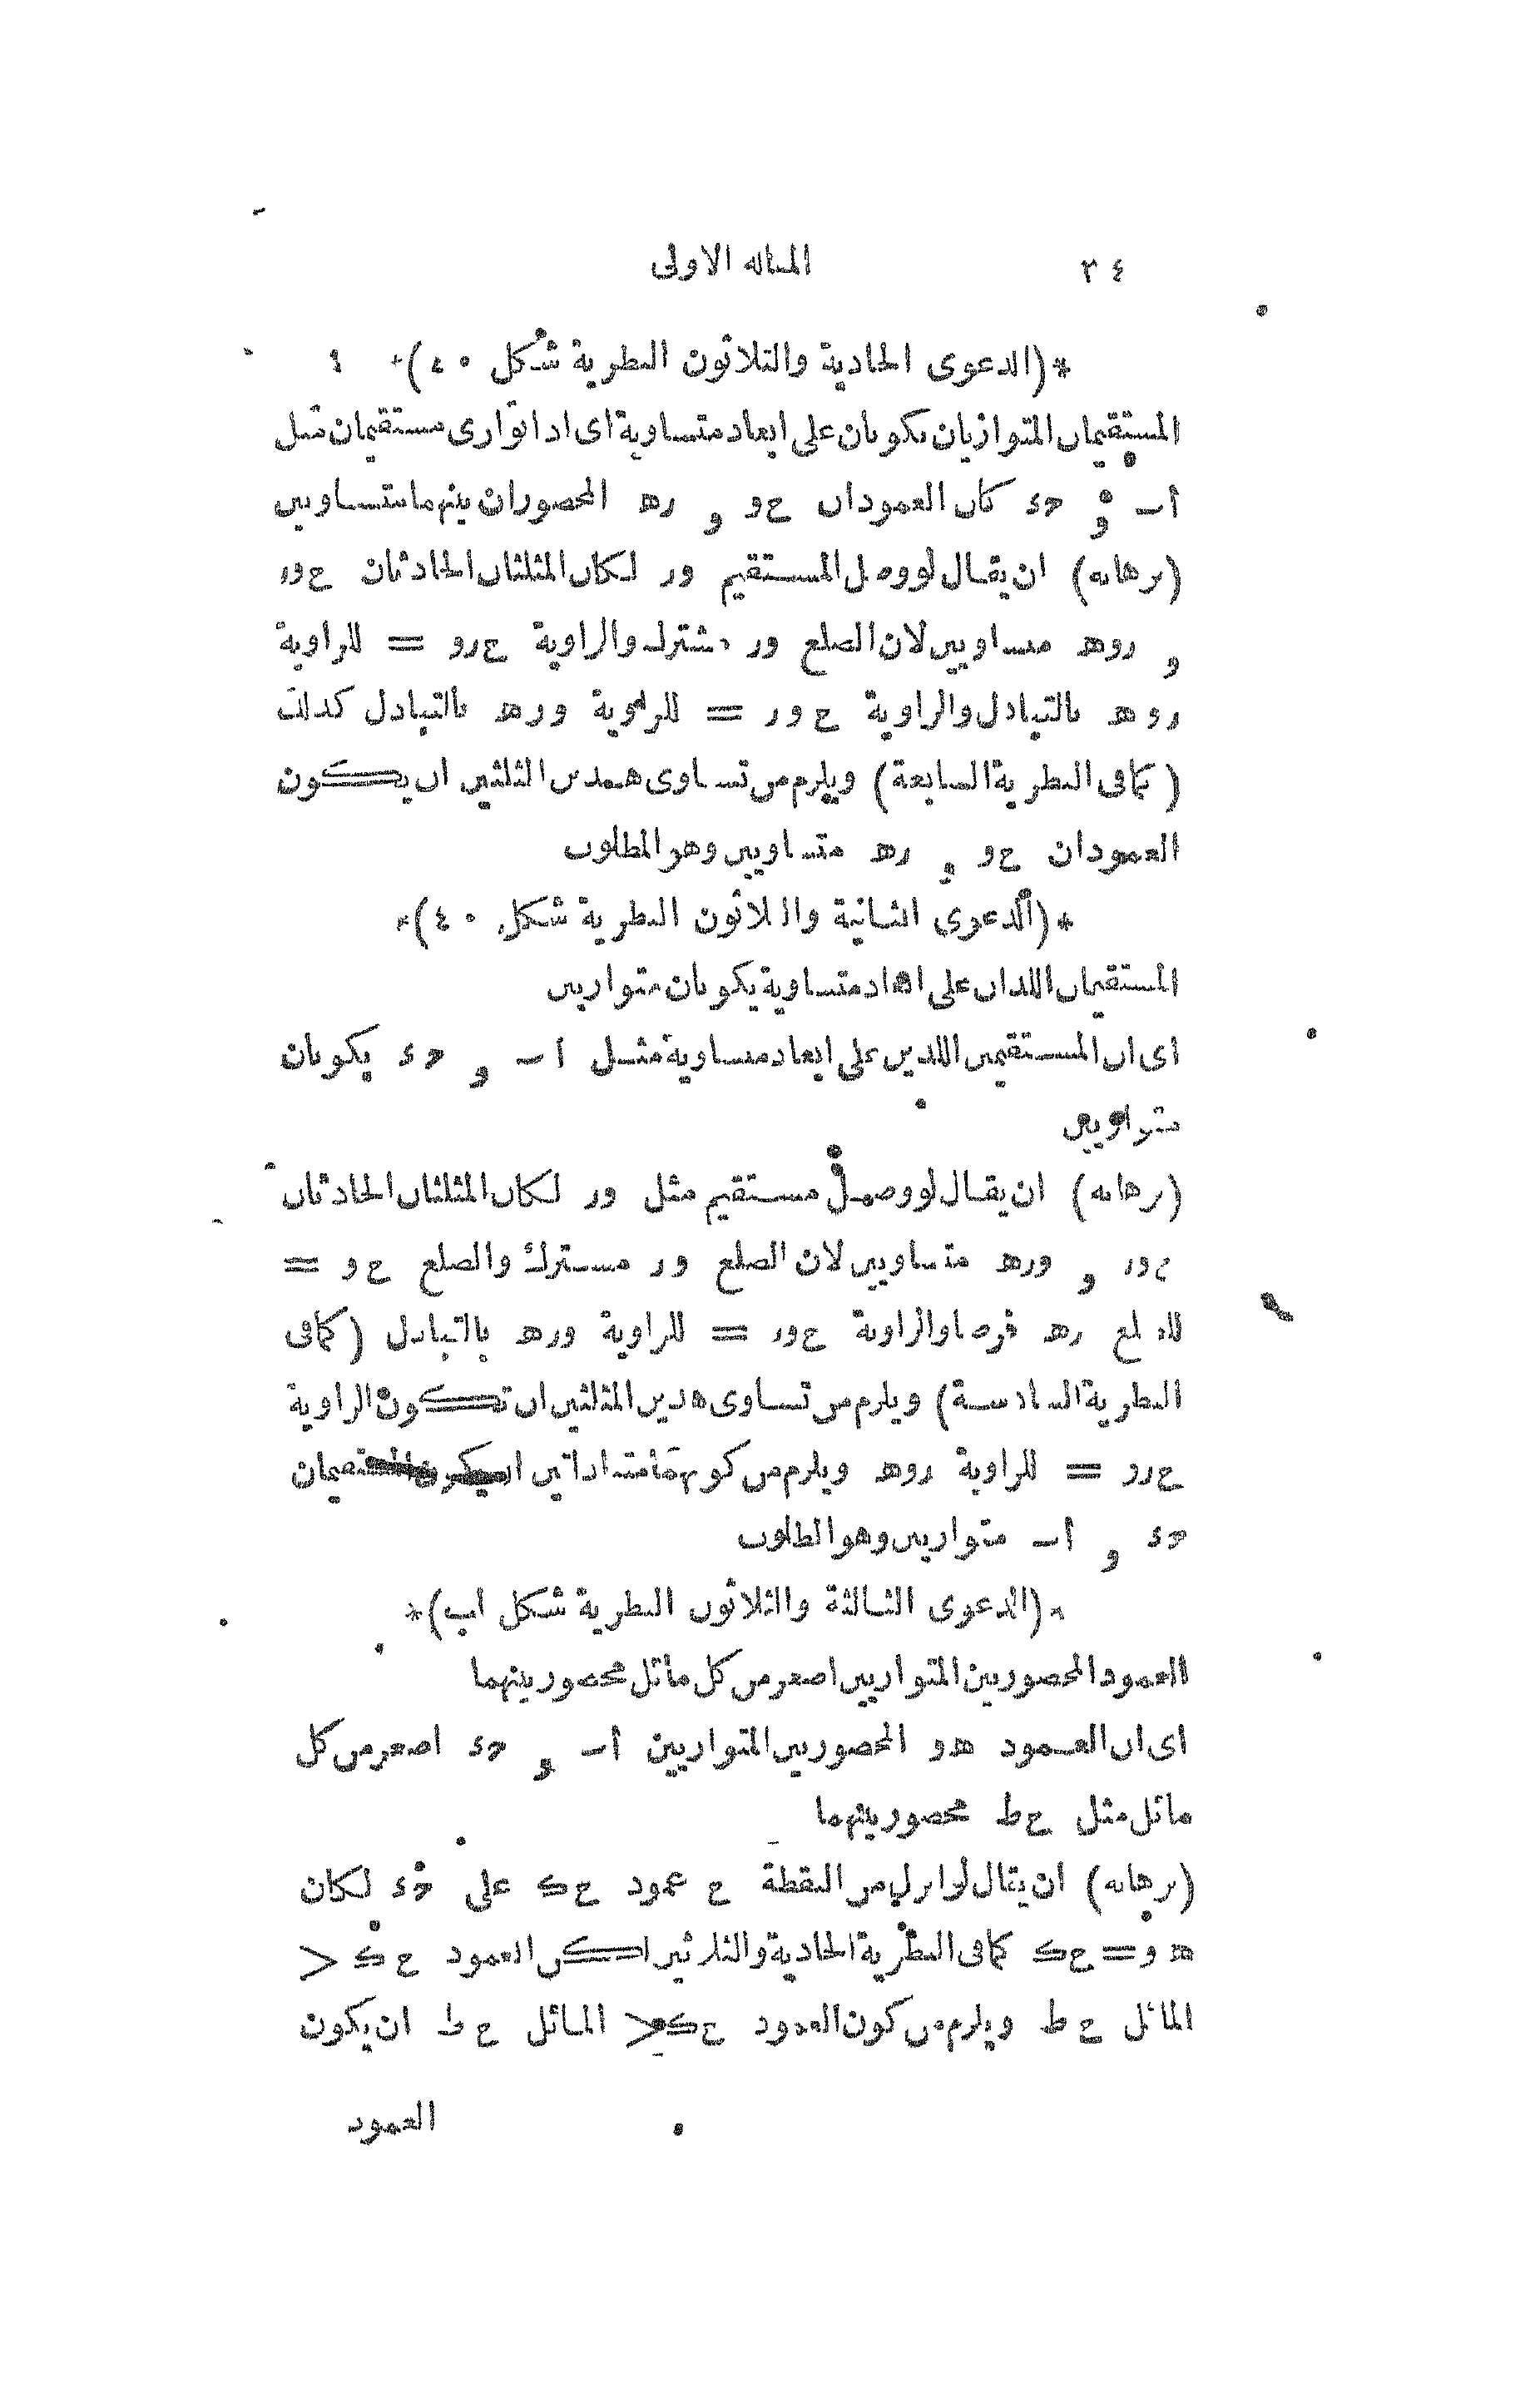 ٣٤ المقالة الاولى
*(الدعوى الحادية والثلاثون النظرية شكل ٤٠)*
المستقيمان المتوازيان يكونان على ابعاد متساوية اى اذا توازى مستقيمان مثل
أب و حء كان العمودان ح و و ر ه المحصوران بينهما متساويين
(برهانه) ان يقال لو وصل المستقيم و ر لكان المثلثان الحادثان ح و ر
و ر و ه متساويين لان الضلع و ر مشترك والزاوية ح ر و = للزاوية
ر و ه بالتبادل والزاوية ح و ر = للزاوية و ر ه بالتبادل كذلك
(كما فى النظرية السابعة) ويلزم من تساوى هذين المثلثين ان يكون
العمودان ح و و ر ه متساويين وهو المطلوب
*(الدعوى الثانية والثلاثون النظرية شكل ٤٠)*
المستقيمان اللذان على ابعاد متساوية يكونان متوازيين
اى ان المستقيمين اللذين على ابعاد متساوية مثل أب و حء يكونان
متوازيين
(برهانه) ان يقال لو وصل مستقيم مثل و ر لكان المثلثان الحادثان
ح و ر و و ر ه متساويين لان الضلع و ر مشترك والضلع ح و =
للضلع ر ه فرضا والزاوية ح و ر = للزاوية و ر ه بالتبادل (كما فى
النظرية السادسة) ويلزم من تساوى هذين المثلثين ان تكون الزاوية
ح ر و = للزاوية ر و ه ويلزم من كونهما متبادلتين ان يكون المستقيمان
حء و أب متوازيين وهو المطلوب
*(الدعوى الثالثة والثلاثون النظرية شكل اب)*
العمود المحصور بين المتوازيين اصغر من كل مائل محصور بينهما
اى ان العمود ه و المحصور بين المتوازيين أب و حء اصغر من كل
مائل مثل ح ط محصور بينهما
(برهانه) ان يقال لو انزل من النقطة ح عمود ح ك على حء لكان
ه و = ح ك كما فى النظرية الحادية والثلاثين لكن العمود ح ك <
المائل ح ط ويلزم من كون العمود ح ك < المائل ح ط ان يكون
العمود